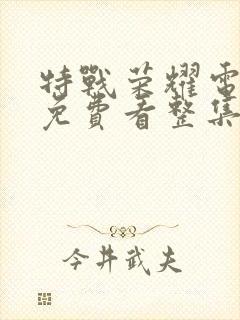 特戰荣耀電
免費看整集
今井武夫